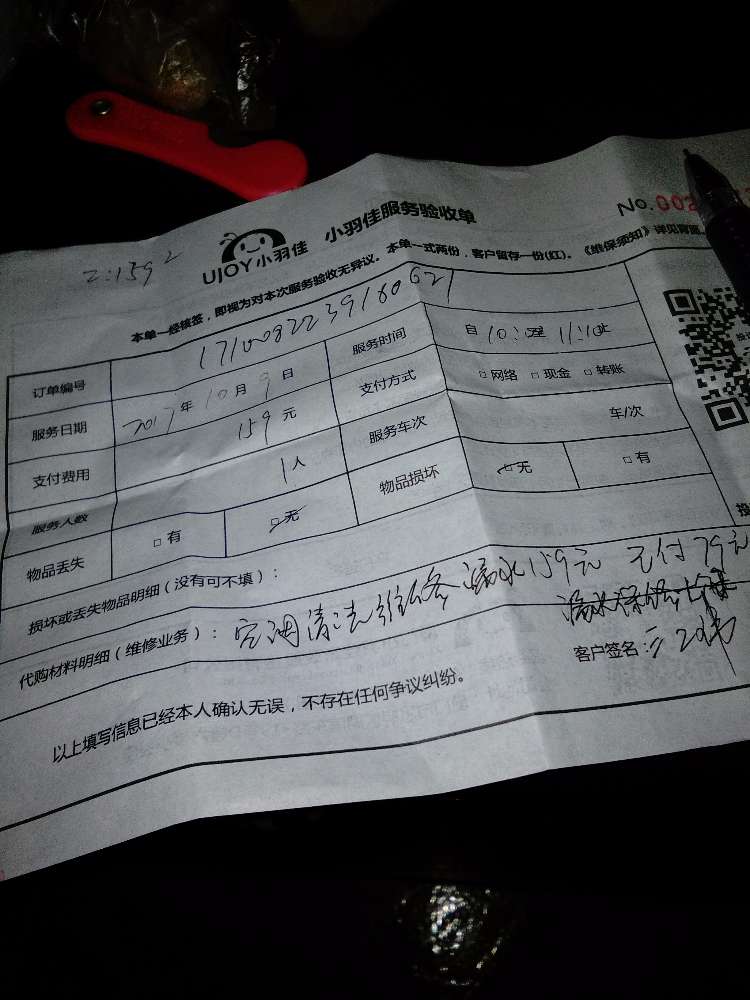 UJOY小羽佳 小羽佳服务验收单
No.002
本单一经核签，即视为对本次服务验收无异议。本单一式两份，客户留存一份(红)。《维保须知》详见背面。
订单编号
服务日期 2017年10月9日 服务时间 自10: 至11:10止
支付费用 159元 支付方式 □网络 □现金 □转账
服务人数 1人 服务车次 车/次
物品丢失 □有 □无 物品损坏 □无 □有
损坏或丢失物品明细（没有可不填）：
代购材料明细（维修业务）：空调清洗维修 漏水159元 已付79元
以上填写信息已经本人确认无误，不存在任何争议纠纷。
客户签名：